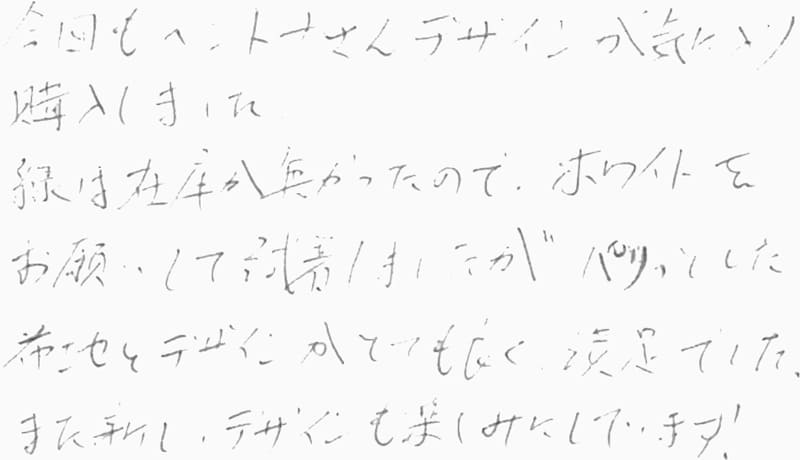 今回もヘントナさんデザインが気に入り
購入しました
緑は在庫が無かったので、ホワイトを
お願いして試着しましたが パリッとした
布地とデザインがとても良く 満足でした。
また新しいデザインも楽しみにしています!